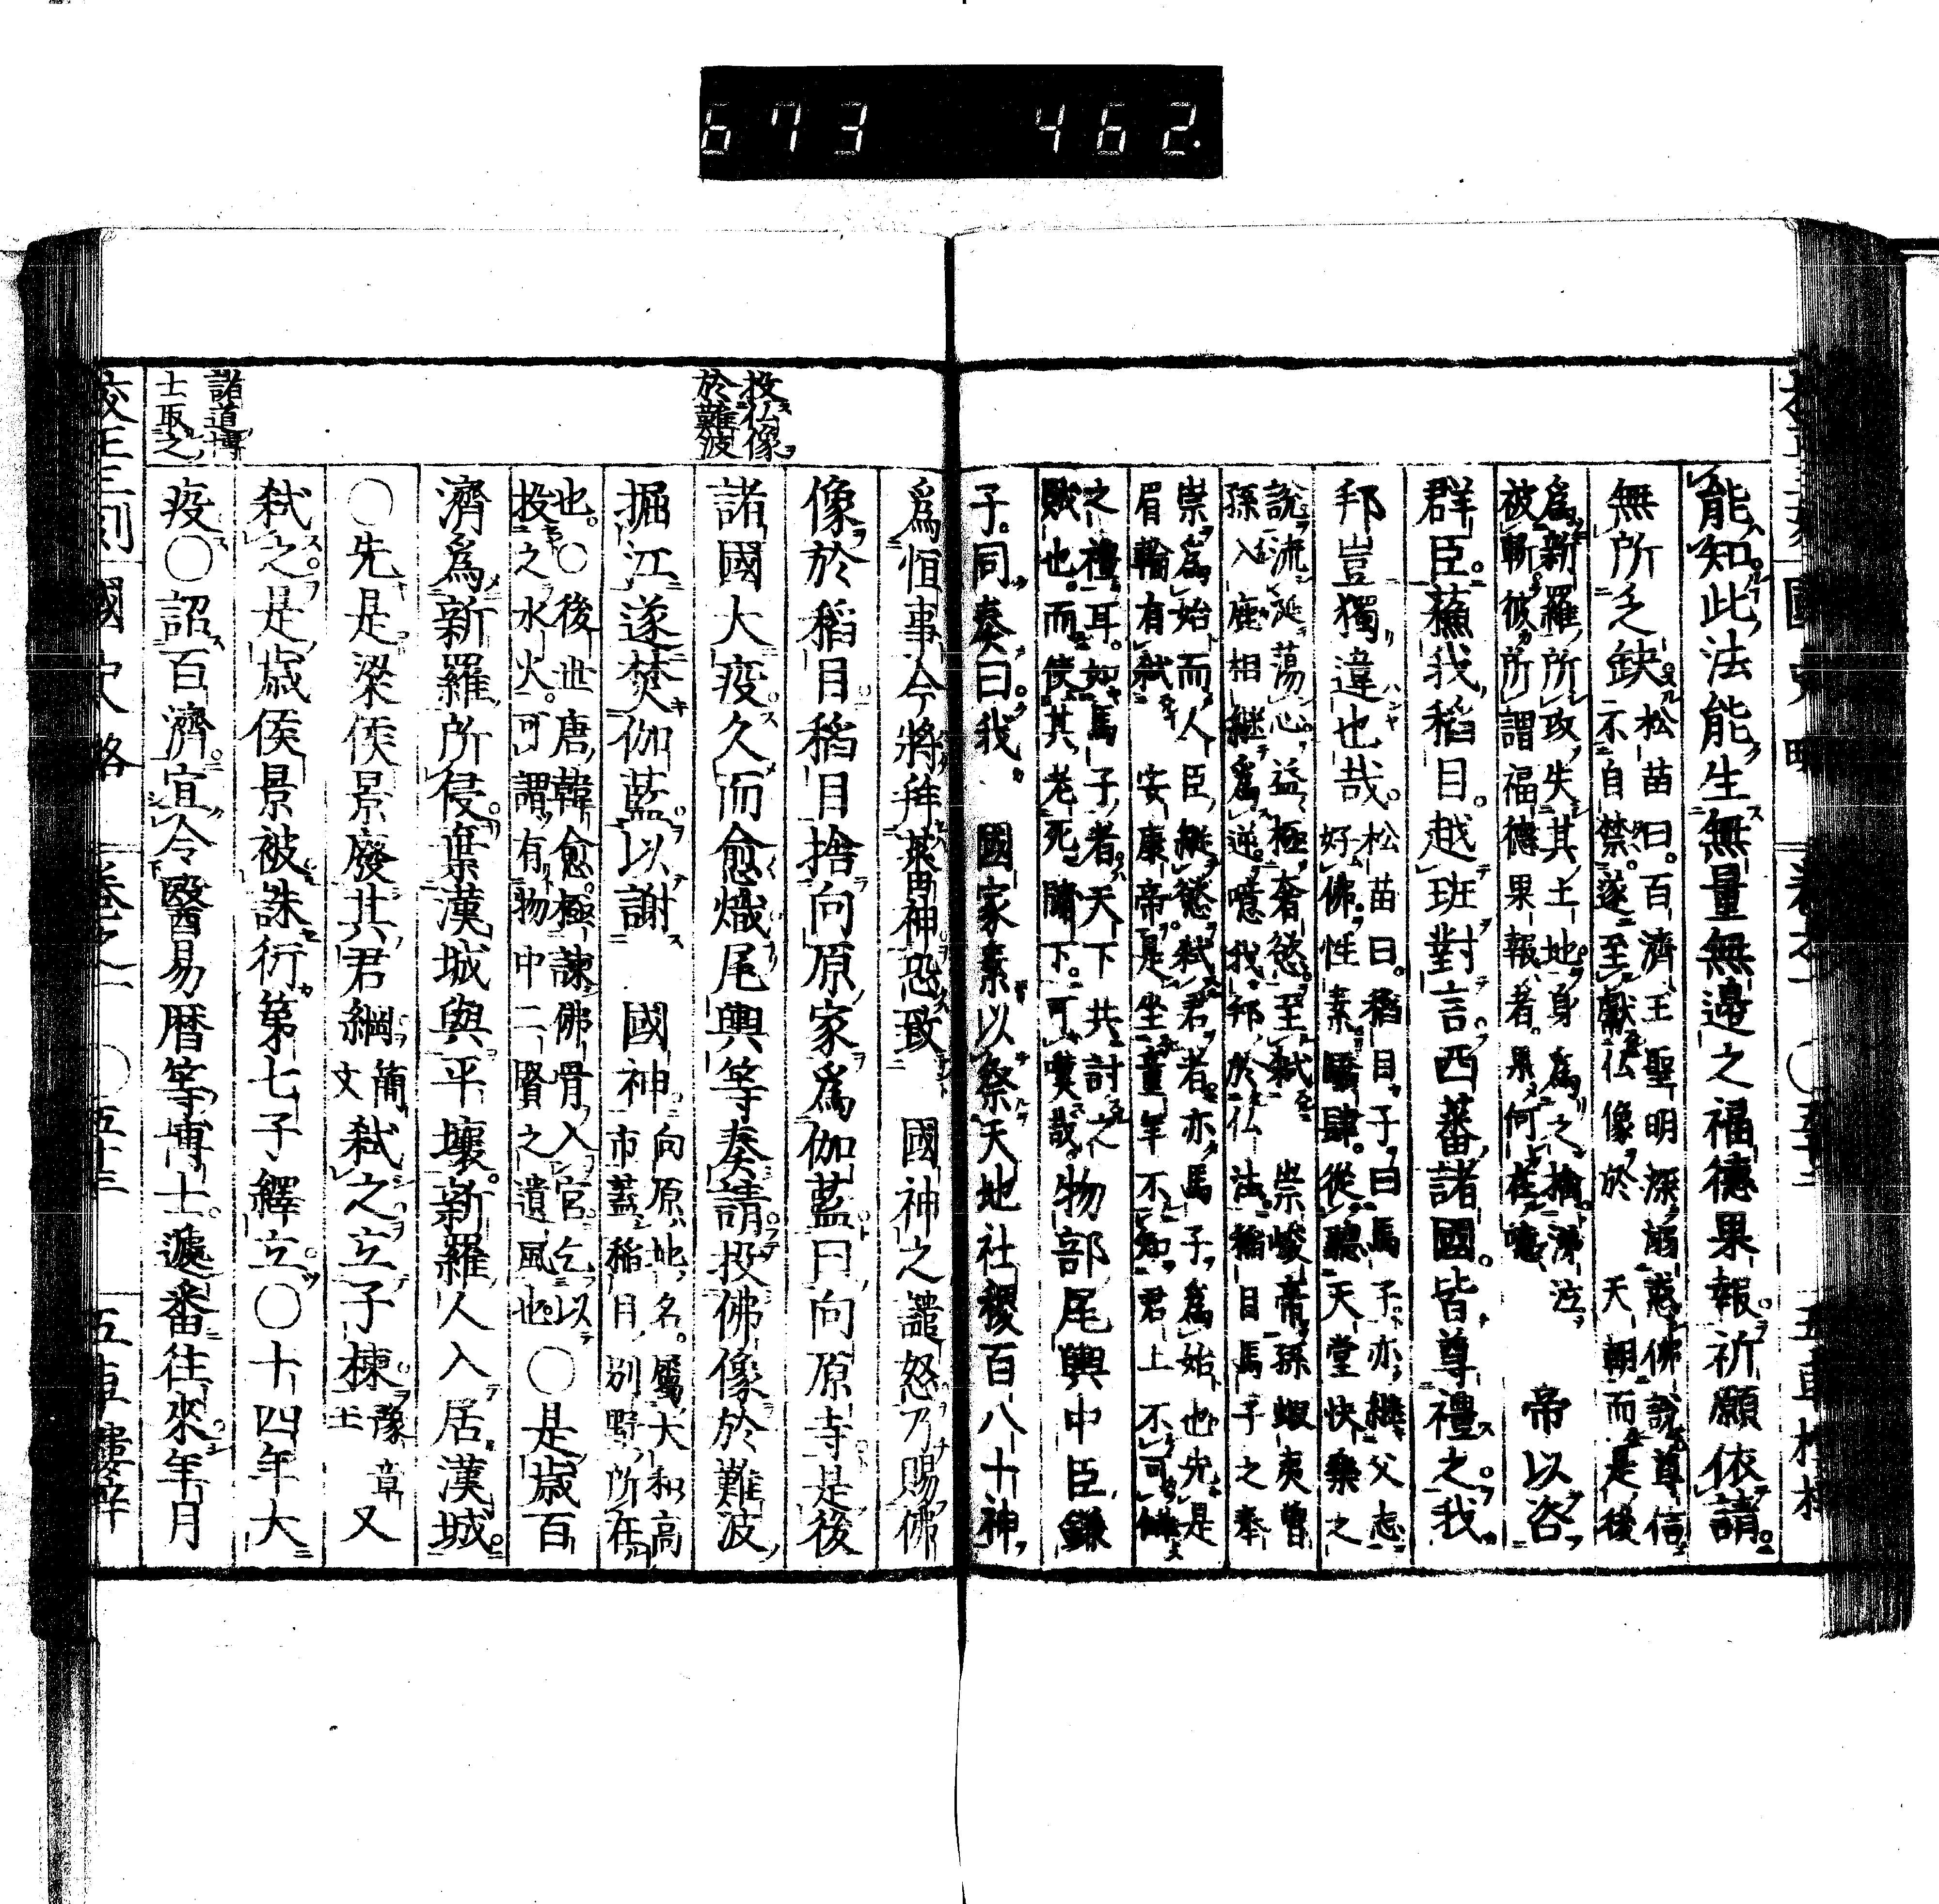 673 462.
能知此法能生無量無邊之福德果報祈願依請
無所乏缺
松苗曰百濟王聖明深溺惑佛說尊信
不自禁遂至獻仏像於 天朝而是後
爲新羅所攻失其土地身爲之擒涕泣
被斬彼所謂福德果報者果何在噫
帝以咨
群臣蘇我稻目越班對言西蕃諸國皆尊禮之我
邦豈獨違也哉
松苗曰稻目子曰馬子亦擬父志
好佛性素驕肆從聽天堂快樂之
說流涎蕩心益極奢慾至弑 崇峻帝孫蝦夷曽
孫入鹿相繼爲逆噫我邦於仏法稲目馬子之奉
崇爲始而人臣縱慾弑君者亦馬子爲始也先是
眉輪有弑 安康帝是坐童年不知君上不可讎
之禮耳如馬子者天下共討之
賊也而使其老死牖下可嘆哉
物部尾輿中臣鎌
子同奏曰我 國家素以祭天地社稷百八十神
爲恒事今將拜某神恐致 國神之譴怒乃賜佛
像於稻目稻目捨向原家爲伽藍曰向原寺是後
諸國大疫久而愈熾尾輿等奏請投佛像於難波
投仏像
於難波
掘江遂焚伽藍以謝 國神
向原地名屬大和高
市蓋稲目別野所在
也○後世唐韓愈極諫佛骨入官乞以
投之水火可謂有物中二賢之遺風也
○是歳百
濟爲新羅所侵棄漢城與平壤新羅人入居漢城
○先是梁侯景廢其君綱
簡
文
弑之立子棟
豫章
王
又
弑之是歳侯景被誅衍第七子繹立○十四年大
疫○詔百濟宜令醫易暦等博士遞番往來年月
諸道博
士取之
國史略
卷之一
○五十三